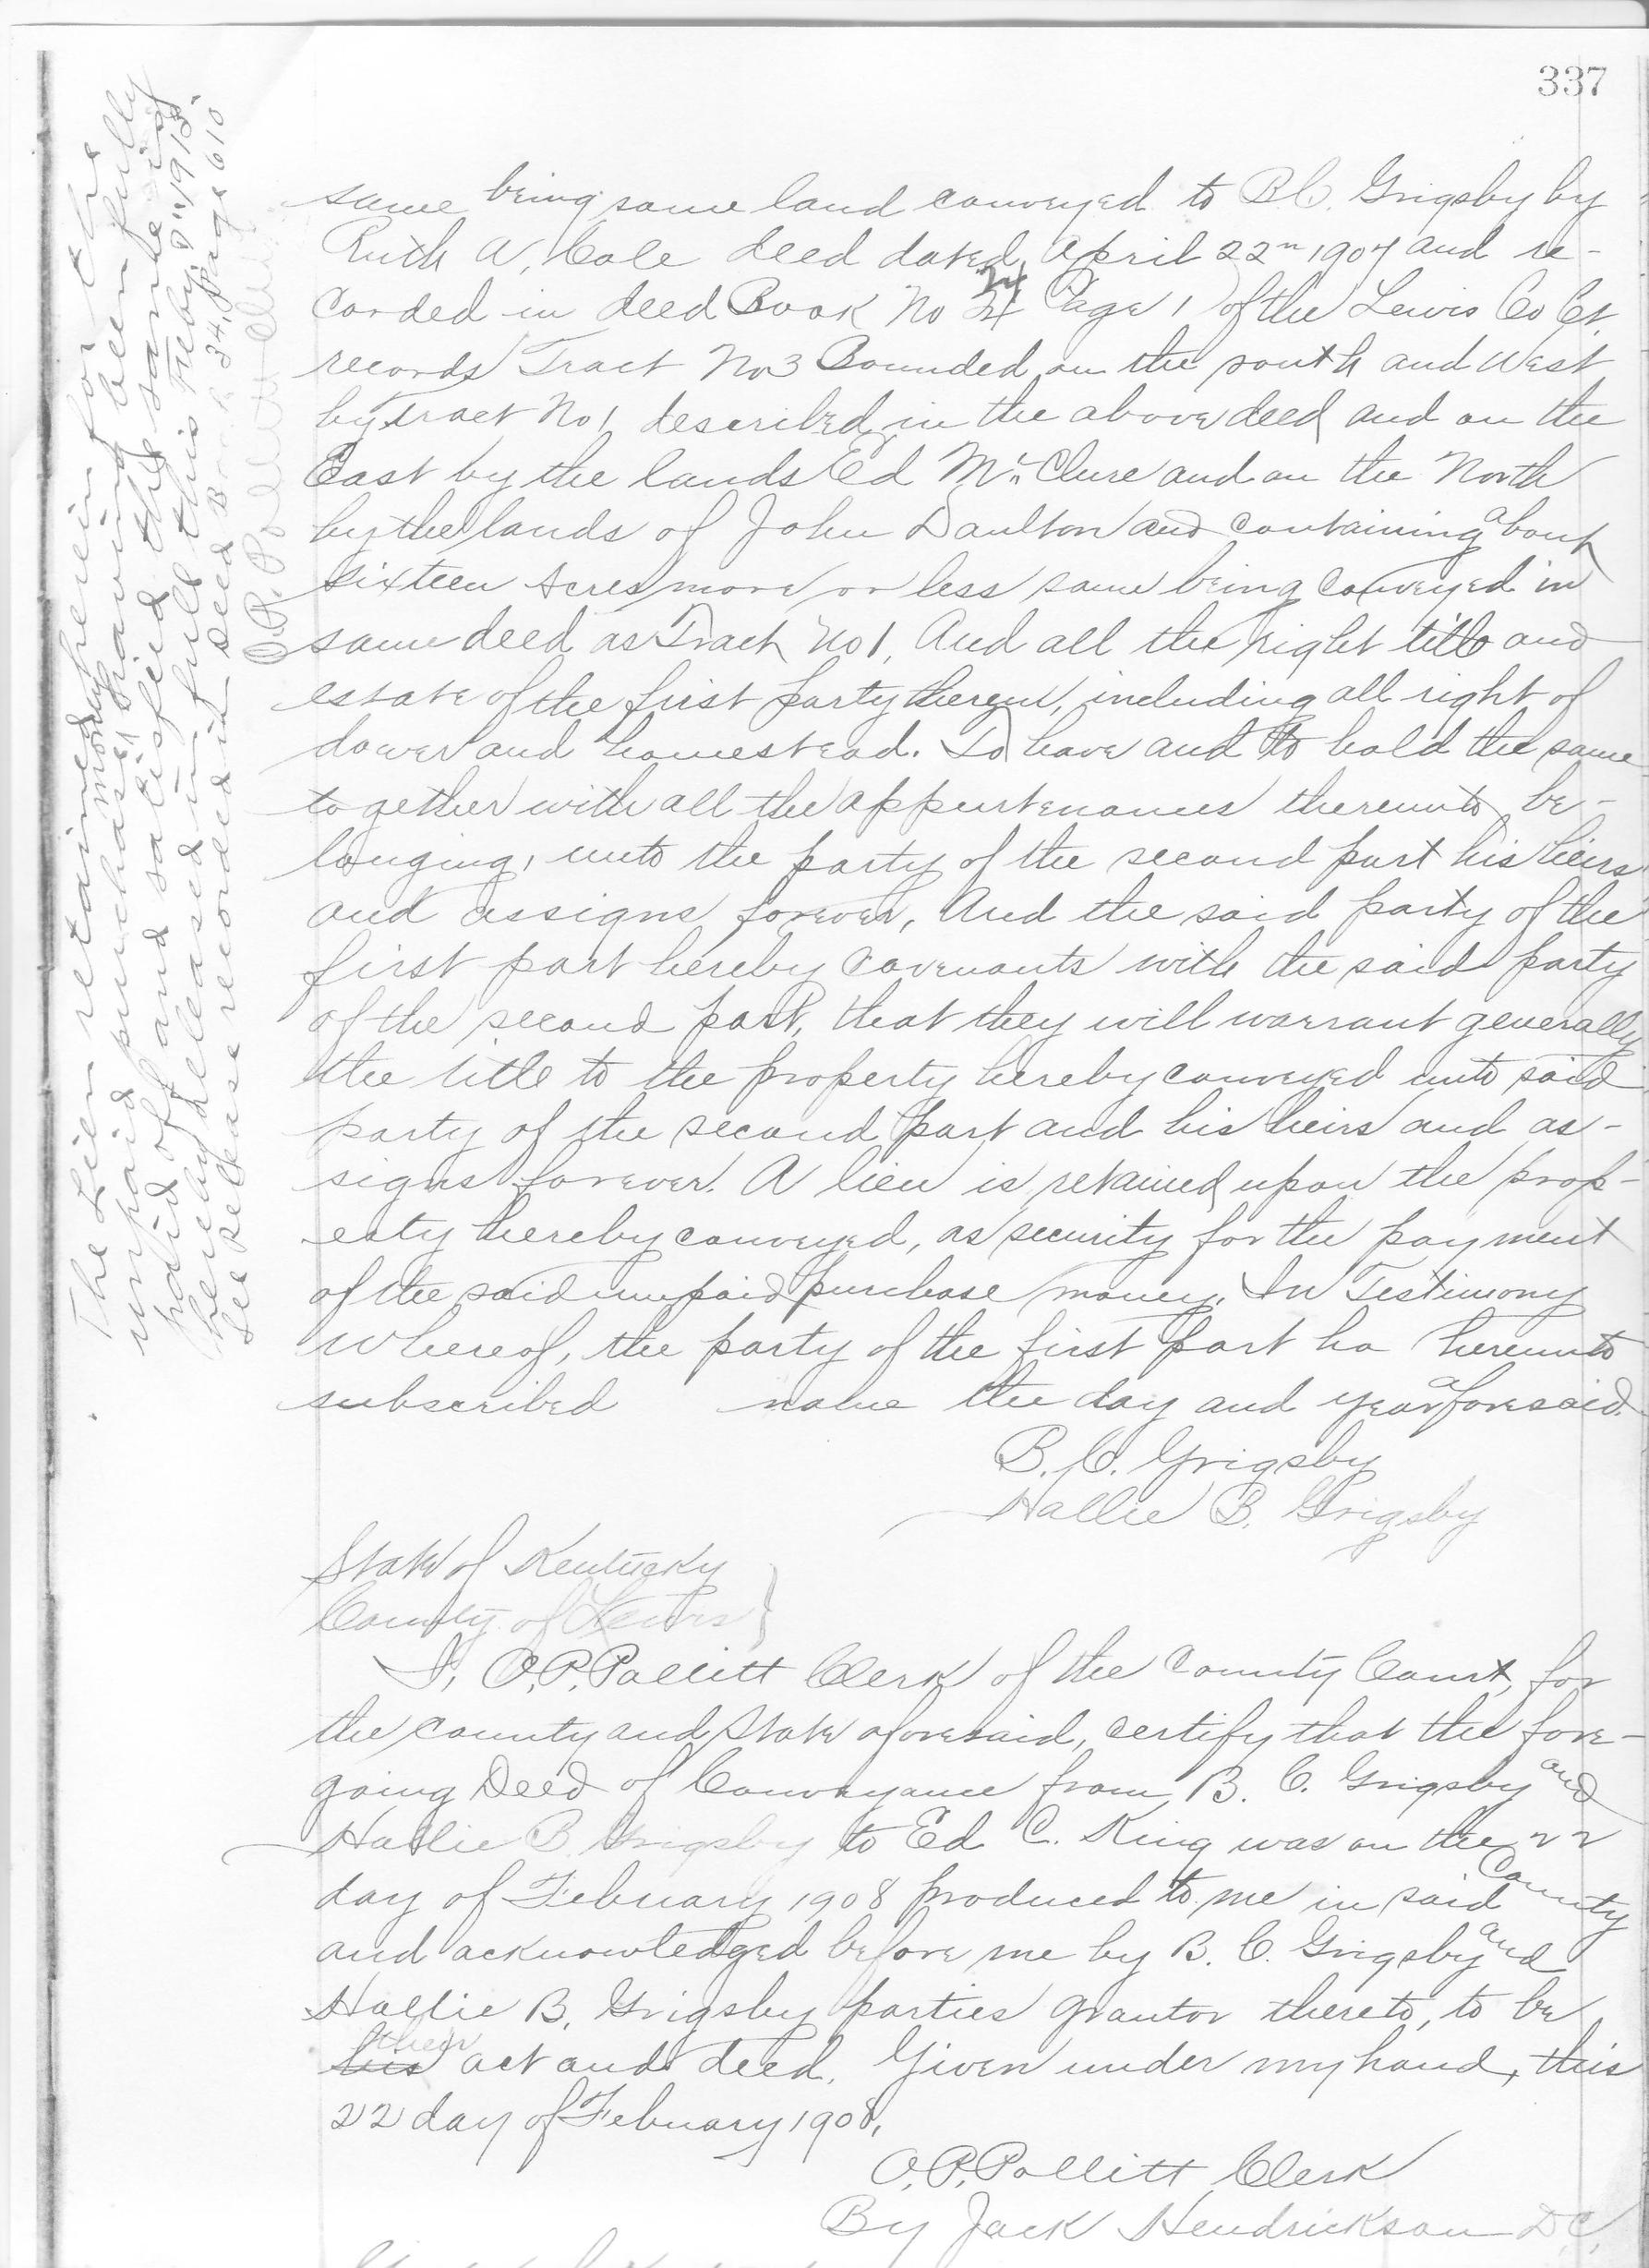 337
same being same land conveyed to B.C. Grigsby by
Ruth A, Cole deed dated April 22n 1907 and re-
corded in deed Book No 34 Page 1 of the Lewis Co Ct.
records Tract No 3 Bounded on the south and West
by Tract No 1, described in the above deed and on the
East by the lands Ed Mc Clure and on the North
by the lands of John Daulton and containing about
Sixteen Acres more or less same being conveyed in
same deed as Tract No 1, And all the right title and
estate of the first party therein, including all right of
dower and homestead. To have and to hold the same
together with all the appurtenances thereunto be-
longing, unto the party of the second part his heirs
and assigns forever, And the said party of the
first part hereby covenants with the said party
of the second part, that they will warrant generally
the title to the property hereby conveyed unto said
party of the second part and his heirs and as-
signs forever. A lien is retained upon the prop-
erty hereby conveyed, as security for the payment
of the said unpaid purchase money, In Testimony
Whereof, the party of the first part ha hereunto
subscribed name the day and year aforesaid.
B. C. Grigsby
Hallie B. Grigsby
State of Kentucky
County of Lewis }
I, O.P. Pollitt Clerk of the County Court, for
the county and State aforesaid, certify that the fore-
going Deed of Conveyance from B. C. Grigsby and
Hallie B Grigsby to Ed C. King was on the 22
day of February 1908 produced to me in said County
and acknowledged before me by B. C. Grigsby and
Hallie B. Grigsby parties grantor thereto, to be
his their act and deed. Given under my hand, this
22 day of February 1908,
O.P. Pollitt Clerk
By Jack Hendrickson D.C.
The Lien retained herein for the
unpaid purchase money having been fully
paid off and satisfied the same is
hereby released in full this Feby. 1915,
See Release recorded in Deed Book 34, Page 610
O.P. Pollitt Clerk